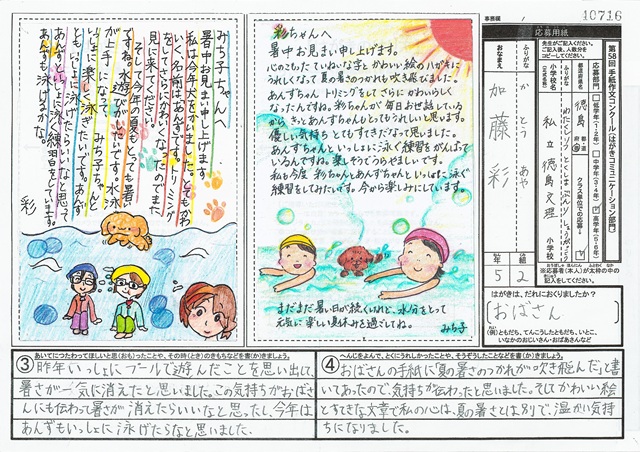 事務欄
40716
応募用紙
先生がご記入ください。
ご記入後、人数分を
コピーしてください。
第58回 手紙作文コンクール(はがきコミュニケーション部門)
応募部門
低学年(1・2年)
中学年(3・4年)
高学年(5・6年)
クラス単位での応募
ふりがな
小学校名
(正式名称)
徳島
都・道
府・県
私立 徳島文理
小学校
ふりがな
おなまえ
かとう あや
加藤 彩
年
5
組
2
※応募者(本人)が太枠の中の
記入をしてください。
はがきは、だれにおくりましたか?
おばさん
(例)ともだち、てんこうしたともだち、いとこ、
いなかのおじいさん・おばあさんなど
みち子ちゃんへ
暑中お見まい申し上げます
私は今年犬をかいました。とてもかわ
いく名前はあんずです。トリミング
をしてさらにかわいくなったのでまた
見に来てください。
そして今年の夏もとても暑い
ですね。水遊びがしたいです。水泳
が上手になって、みち子ちゃんと
いっしょに楽しく泳ぎたいです。あんず
ともいっしょに泳げたらいいなと思って
あんずといっしょに泳ぐ練習をしています。
あんずも泳げるかな。
彩
彩ちゃんへ
暑中お見まい申し上げます。
心のこもったていねいな字とかわいい絵のハガキに
うれしくなって夏の暑さのつかれも吹き飛びました。
あんずちゃんトリミングをしてさらにかわいらしく
なったんですね。彩ちゃんが毎日お世話している
から きっとあんずちゃんもとってもうれしいと思います。
優しい気持ちとてもすてきだなって思いました。
あんずちゃんといっしょに泳ぐ練習をがんばって
いるんですね。楽しそうでうらやましいです。
私も今度 彩ちゃんとあんずちゃんといっしょに泳ぐ
練習をしてみたいです。今から楽しみにしています。
まだまだ暑い日が続くけれど、水分をとって
元気に楽しい夏休みを過ごしてね。
みち子
③
あいてにつたわってほしいと思(おも)ったことや、その時(とき)のきもちなどを書(か)きましょう。
昨年いっしょにプールで遊んだことを思い出して、
暑さが一気に消えたと思いました。この気持ちがおばさ
んにも伝わって暑さが消えたらいいなと思ったし、今年は
あんずもいっしょに泳げたらなと思いました。
④
へんじをよんで、とくにうれしかったことや、そうぞうしたことなどを書(か)きましょう。
おばさんの手紙に夏の暑さのつかれが吹き飛んだと書
いてあったので、気持ちが伝わったと思いました。そしてかわいい絵
とすてきな文章で私の心は、夏の暑さとは別で、温かい気持
ちになりました。